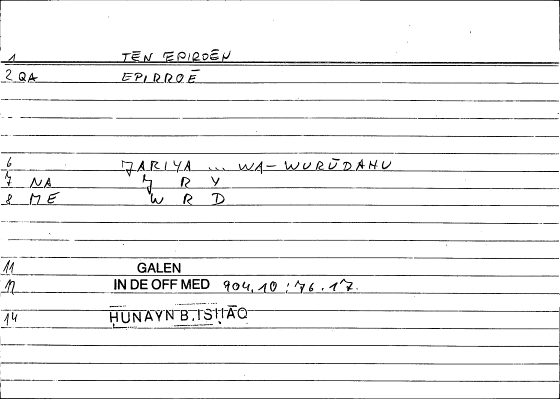 1 TĒN EPIROĒN
2 QA EPIRROĒ
6 JARIYA ... WA-WURŪDAHU
7 NA J R Y
8 ME W R D
11 GALEN
12 IN DE OFF MED 904,10 : 76.17.
14 HUNAYN B.ISHĀQ